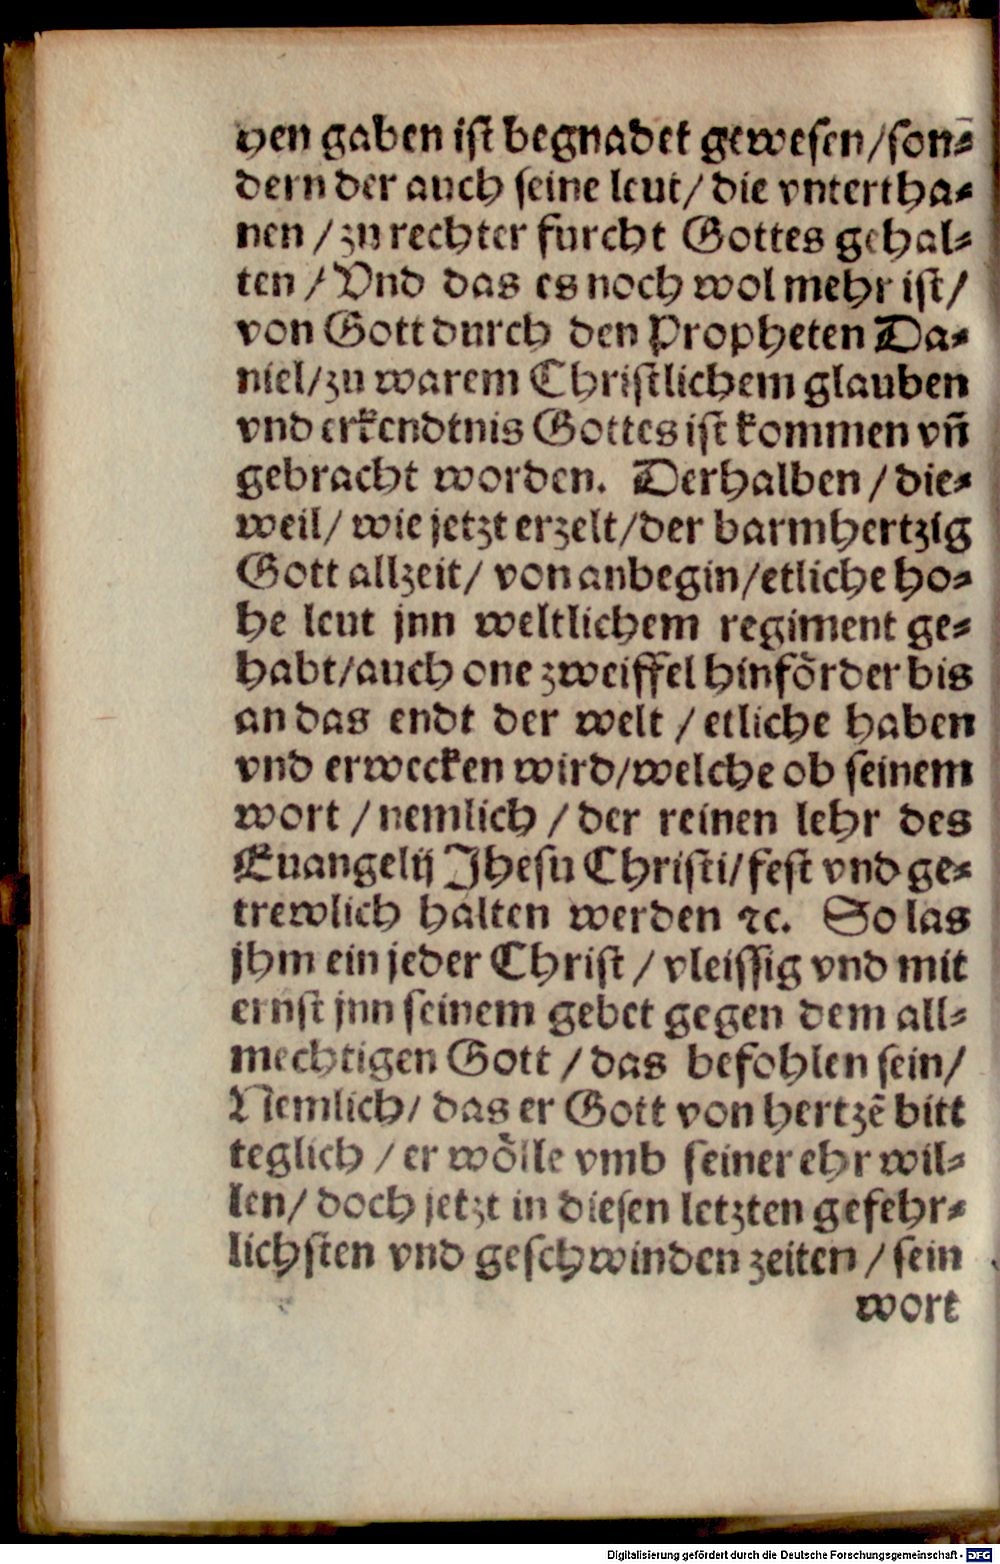 hen gaben ist begnadet gewesen/son⸗
dern der auch seine leut/ die vntertha⸗
nen / zu rechter furcht Gottes gehal⸗
ten / Vnd das es noch wol mehr ist/
von Gott durch den Propheten Da⸗
niel/zu warem Christlichem glauben
vnd erkendtnis Gottes ist kommen vn̄
gebracht worden. Derhalben / die⸗
weil/ wie jetzt erzelt/der barmhertzig
Gott allzeit/ von anbegin/etliche ho⸗
he leut jnn weltlichem regiment ge⸗
habt/auch one zweiffel hinförder bis
an das endt der welt / etliche haben
vnd erwecken wird/welche ob seinem
wort / nemlich / der reinen lehr des
Euangelij Jhesu Christi/fest vnd ge⸗
trewlich halten werden ⁊c. So las
jhm ein jeder Christ / vleissig vnd mit
ernst jnn seinem gebet gegen dem all⸗
mechtigen Gott / das befohlen sein/
Nemlich/ das er Gott von hertzē bitt
teglich / er wölle vmb seiner ehr wil⸗
len/ doch jetzt in diesen letzten gefehr⸗
lichsten vnd geschwinden zeiten / sein
wort
Digitalisierung gefördert durch die Deutsche Forschungsgemeinschaft - DFG